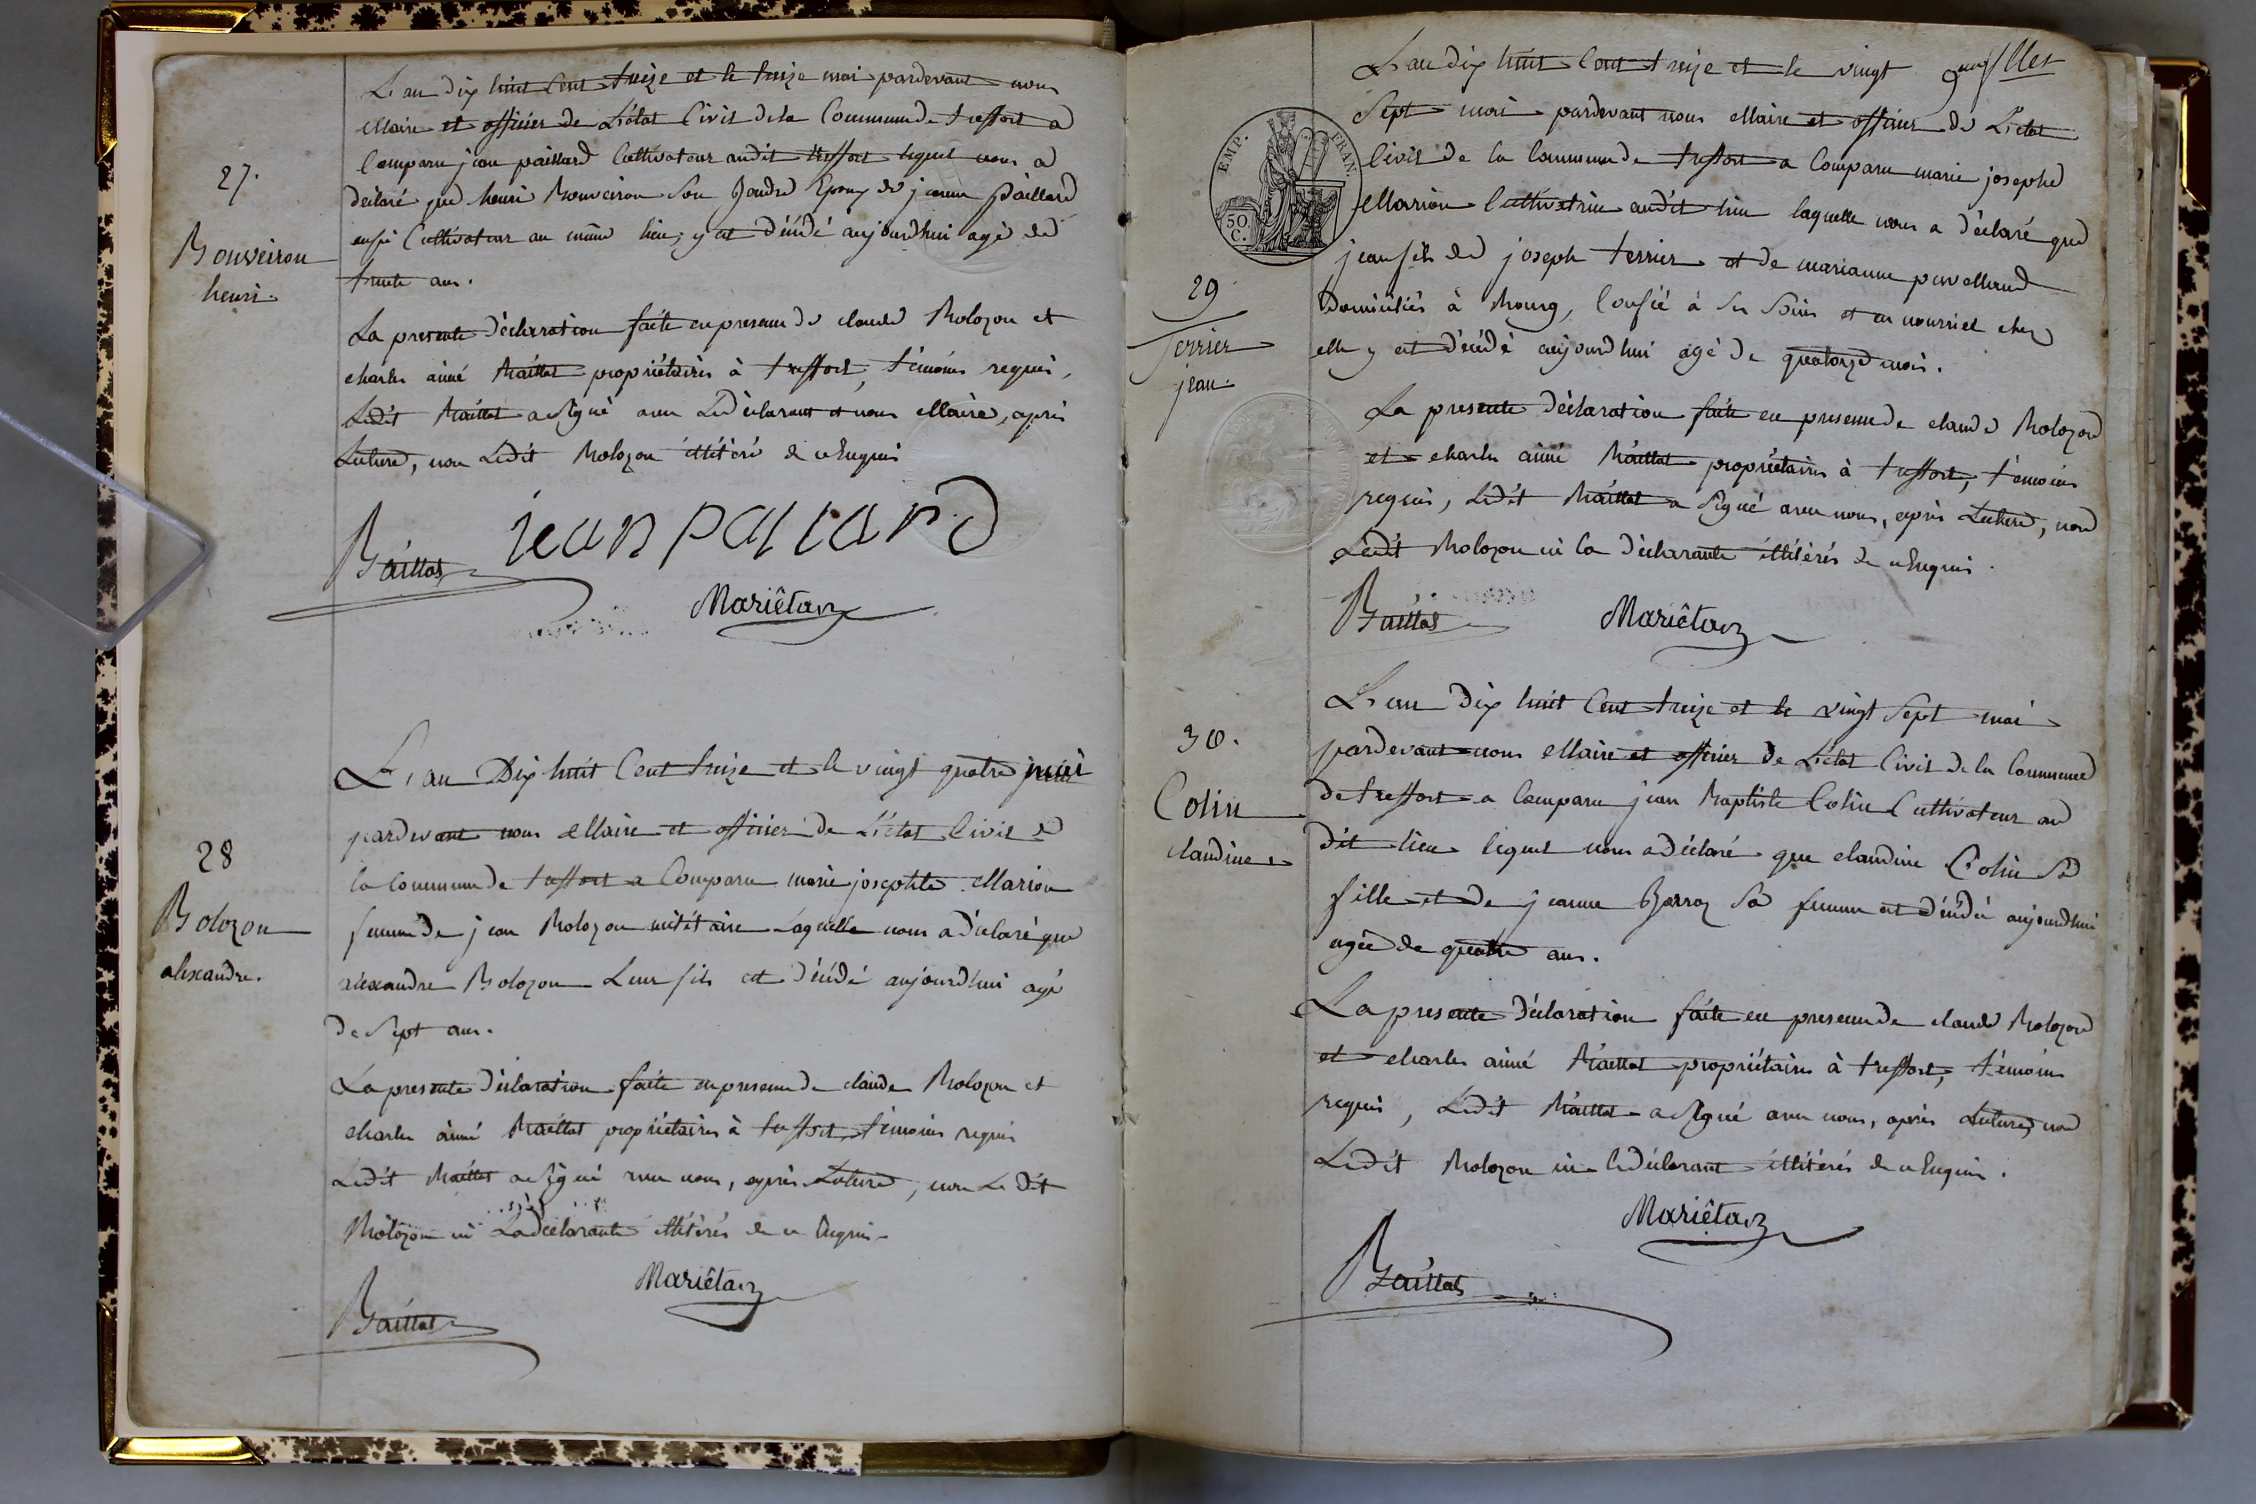 L'an dix huit Cent treize et le treize mai pardevant nous
Maire et officier de L'état Civil de la Commune de treffort a
Comparu jean paillard Cultivateur audit treffort lequel nous a
déclaré que henri Bouveiron Son Gendre Epoux de jeanne Paillard
aussi Cultivateur au même lieu, y est décédé aujourdhui agé de
trente ans.
27.
Bouveiron
henri.
La presente déclaration faite en presence de claude Bolozon et
charles aimé Baillat propriétaires à treffort, témoins requis,
Ledit Baillat a Signé avec Le déclarant et nous Maire, après
Lecture, non Ledit Bolozon illitéré de ce Enquis
jean paLLard
Baillat
Mariêtan
L'an Dix huit Cent treize et le vingt quatre mai
pardevant nous Maire et officier de L'état Civil de
la Commune de treffort a Comparu marie josephte Marion
femme de jean Bolozon militaire Laquelle nous a déclaré que
alexandre Bolozon Leur fils est décédé aujourd'hui agé
de Sept ans.
28
Bolozon
alexandre.
La presente déclaration faite en presence de claude Bolozon et
charles aimé Baillat propriétaires à treffort, témoins requis
Ledit Baillat a Signé avec nous, après Lecture, non Le Dit
Bolozon ni La déclarante illitérés de ce Enquis
Mariêtan
Baillat
L'an dix huit Cent treize et le vingt
Sept mai pardevant nous Maire et officier de L'état
Civil de la Commune de treffort a Comparu marie josephe
Marion Cultivatrice audit lieu laquelle nous a déclaré que
jean fils de joseph terrier et de marianne
Domiciliés à Bourg, Confié à Ses Soins et en nourrice chez
elle y est décédé aujourdhui agé de quatorze mois.
EMP. FRAN.
50 C.
29
Terrier
jean.
La presente déclaration faite en presence de claude Bolozon
et charles aimé Baillat propriétaires à treffort, témoins
requis, Ledit Baillat a Signé avec nous, après Lecture, non
Ledit Bolozon ni la déclarante illitérés de ce Enquis.
Baillat
Mariêtan
L'an Dix huit Cent treize et le vingt Sept mai
pardevant nous Maire et officier de L'état Civil de la Commune
de treffort a Comparu jean Baptiste Colin Cultivateur au
dit lieu lequel nous a déclaré que claudine Colin Sa
fille et de jeanne Sa femme est décédée aujourdhui
agée de quatre ans.
30.
Colin
claudine
La presente déclaration faite en presence de claude Bolozon
et charles aimé Baillat propriétaires à treffort, témoins
requis, Ledit Baillat a Signé avec nous, après Lecture, non
Ledit Bolozon ni le déclarant illitérés de ce Enquis.
Mariêtan
Baillat